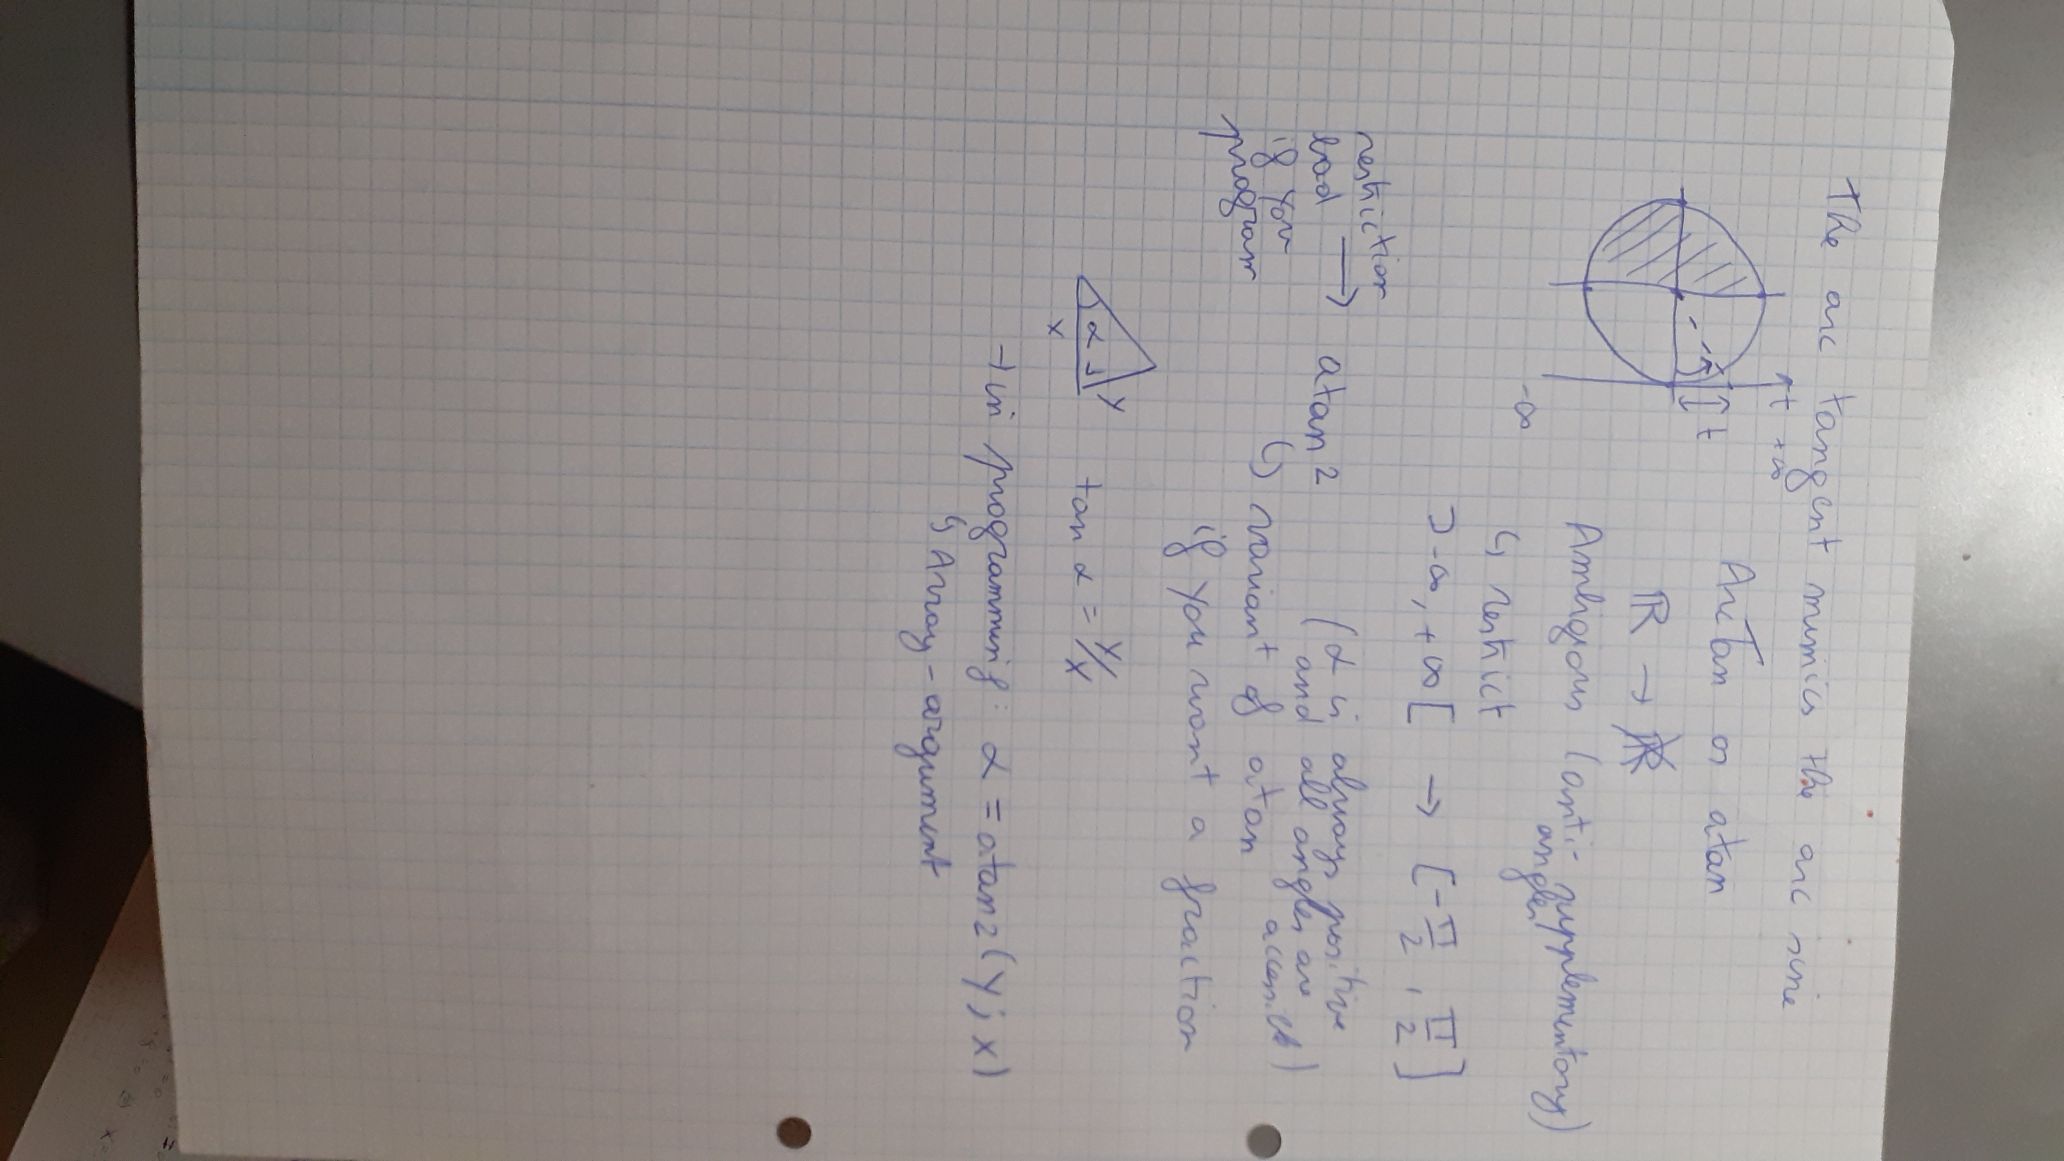 The arc tangent mimics the arc sine
t +∞
ArcTan or atan
t
ℝ → ℝ
Ambigious (anti-supplementory)
angles
↳ restrict
-∞
]-∞, +∞[ → [-π/2, π/2]
restriction
bad → atan2
if you
program
(α is always positive
and all angles are
accessible)
↳ variant of atan
if you want a fraction
α y
x
tan α = y/x
→ in programming: α = atan2(y; x)
↳ Array-argument